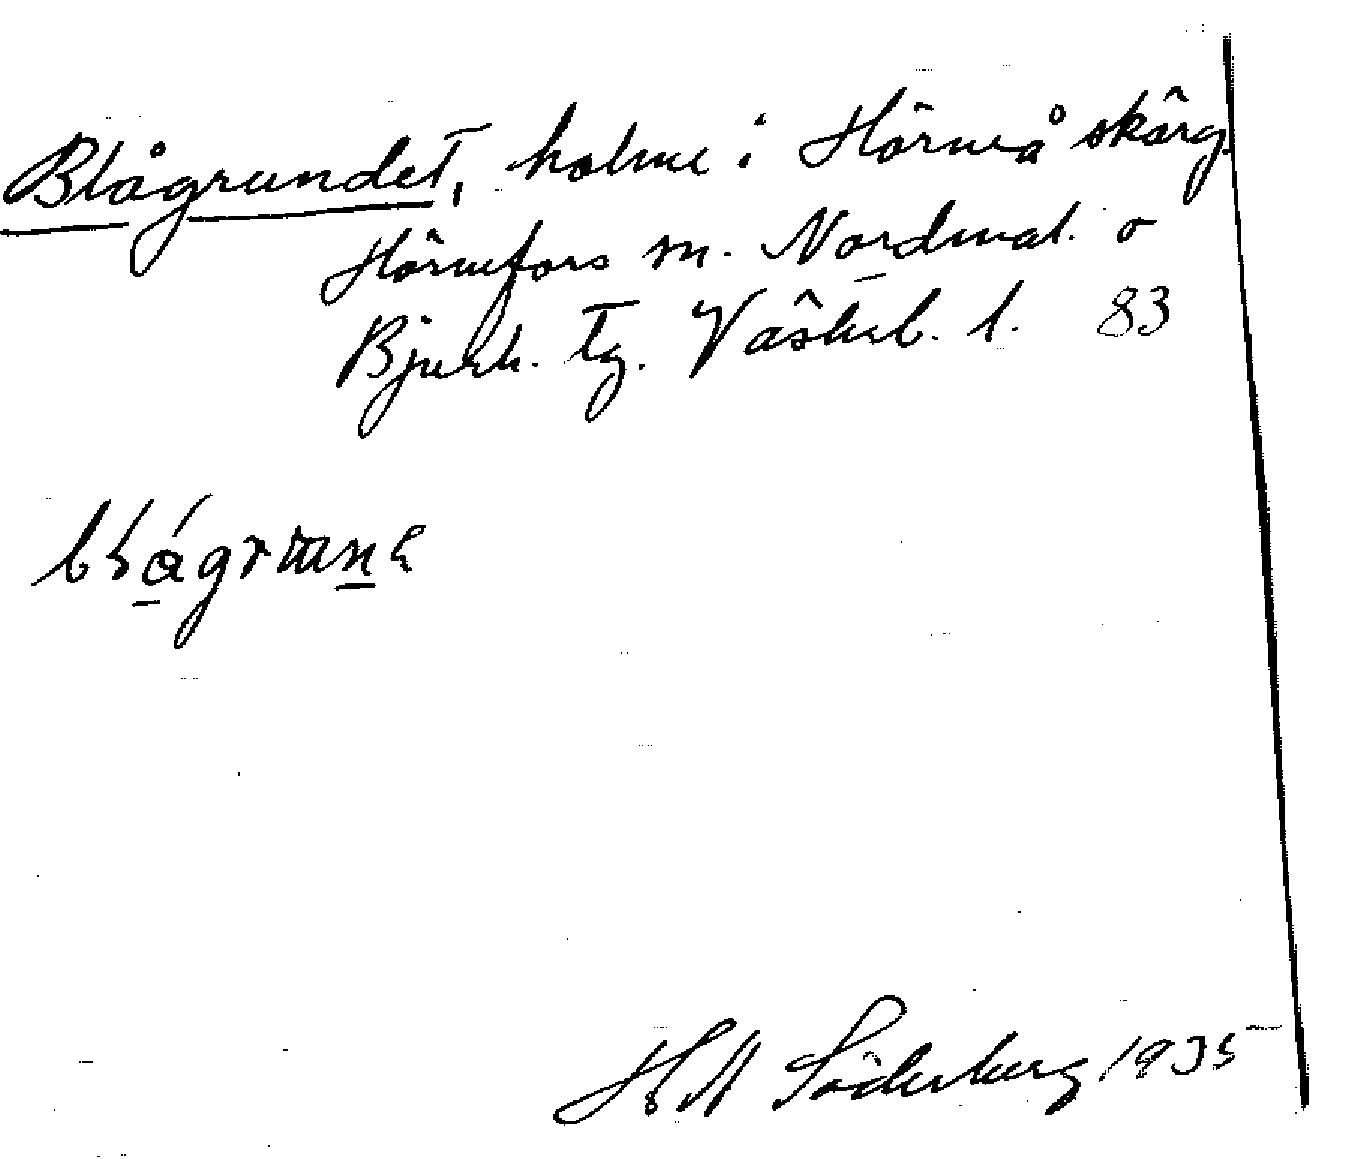 Blågrundet, holme i Hörneå skärg.
Hörnefors sn. Nordmal. o
Bjurh. tg. Västerb. l. 83
H A Söderberg 1935